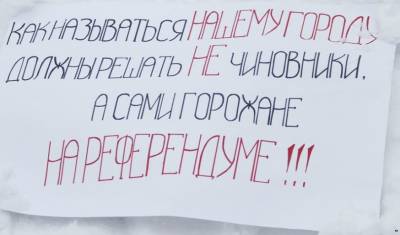 КАК НАЗЫВАТЬСЯ НАШЕМУ ГОРОДУ
ДОЛЖНЫ РЕШАТЬ НЕ ЧИНОВНИКИ,
А САМИ ГОРОЖАНЕ
НА РЕФЕРЕНДУМЕ !!!